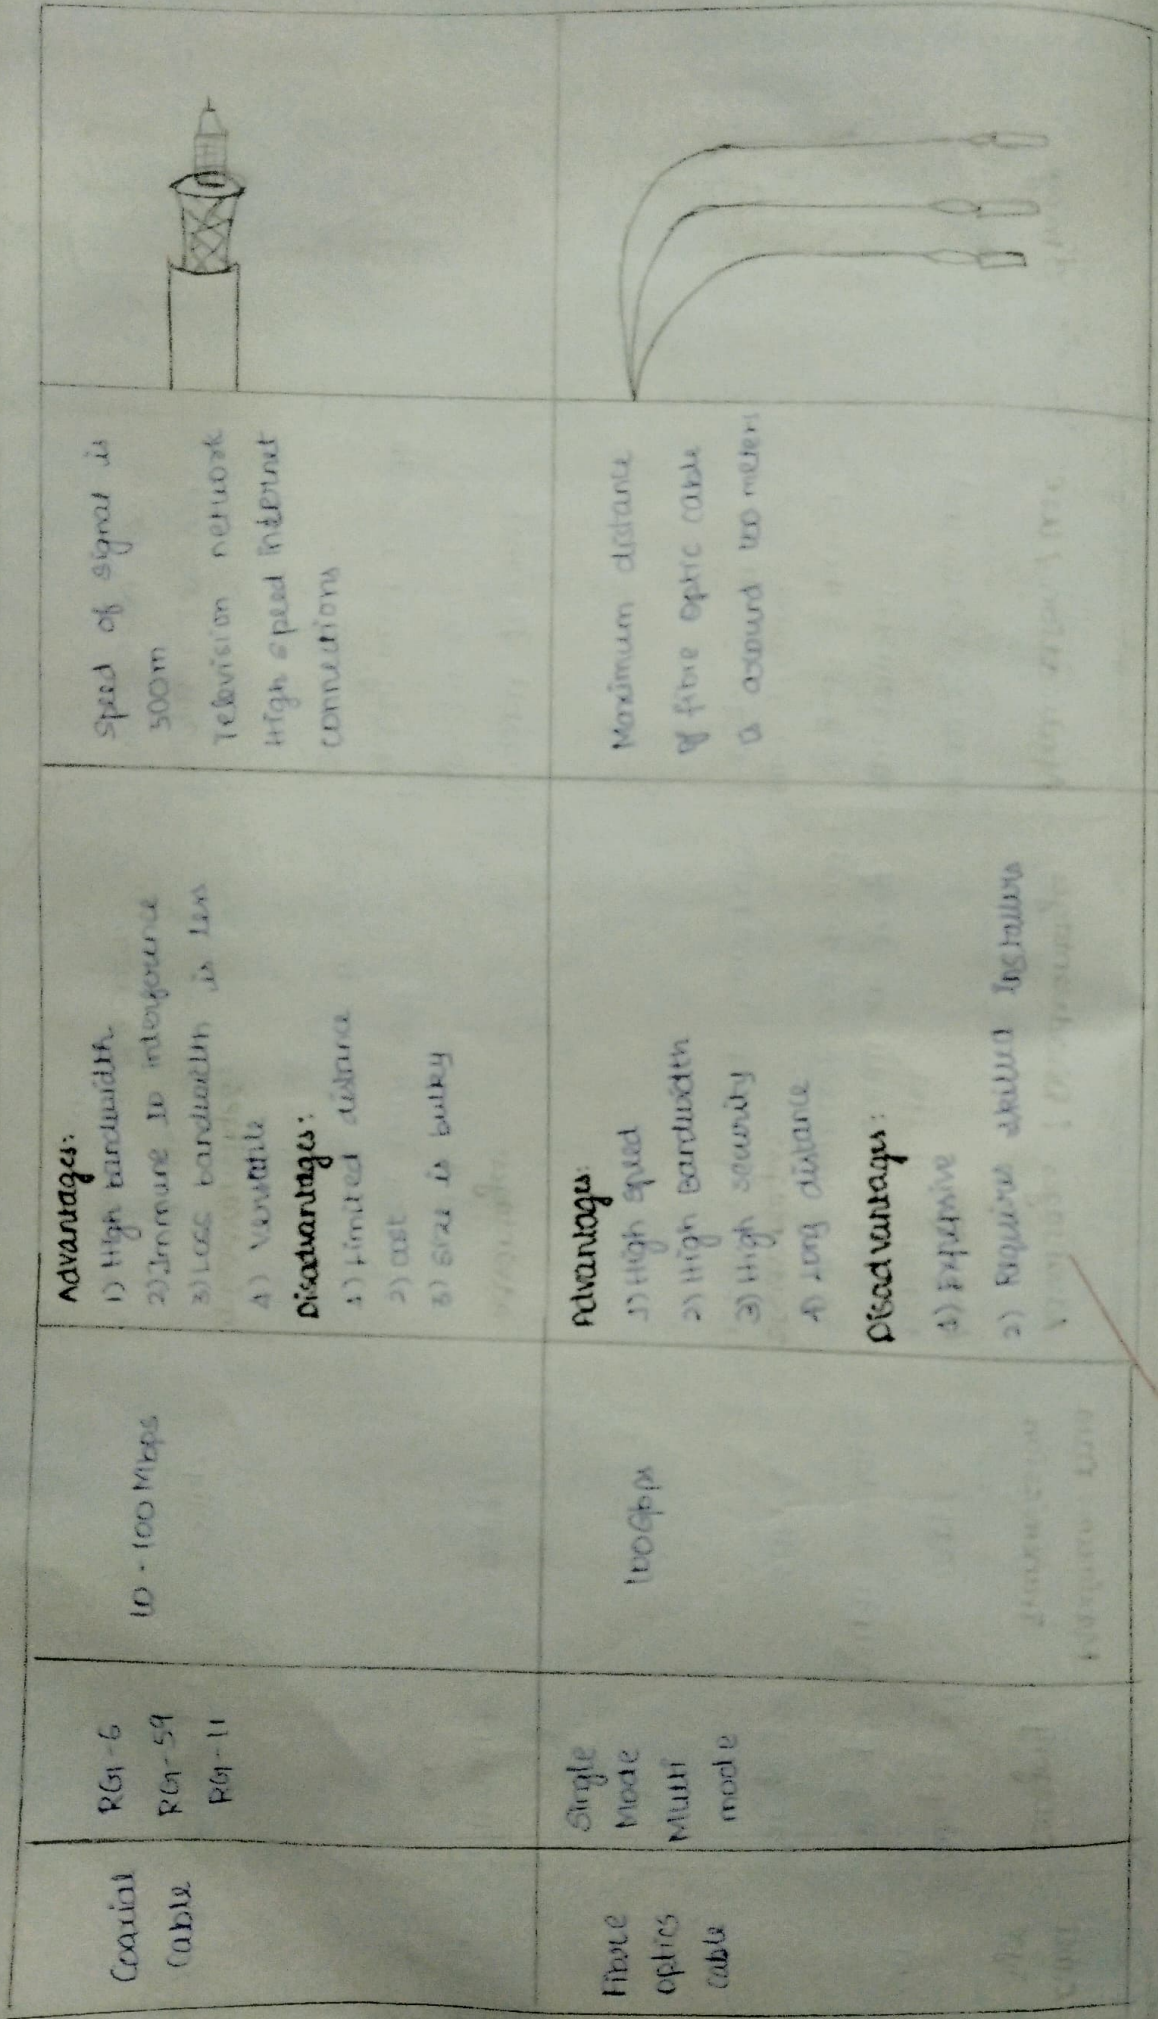 Coaxial
Cable
RG-6
RG-59
RG-11
10-100 Mbps
Advantages:
1) High bandwidth
2) Immune to interference
3) Loss bandwidth is less
4) Versatile
Disadvantages:
1) Limited distance
2) cost
3) size is bulky
Speed of signal is
500m
Television network
High speed internet
connections
Fibre
optics
cable
Single
Mode
Multi
mode
100Gbps
Advantages:
1) High speed
2) High Bandwidth
3) High security
4) Long distance
Disadvantages:
1) Expensive
2) Requires skilled Installers
Maximum distance
of fibre optic cable
is around 100 meters